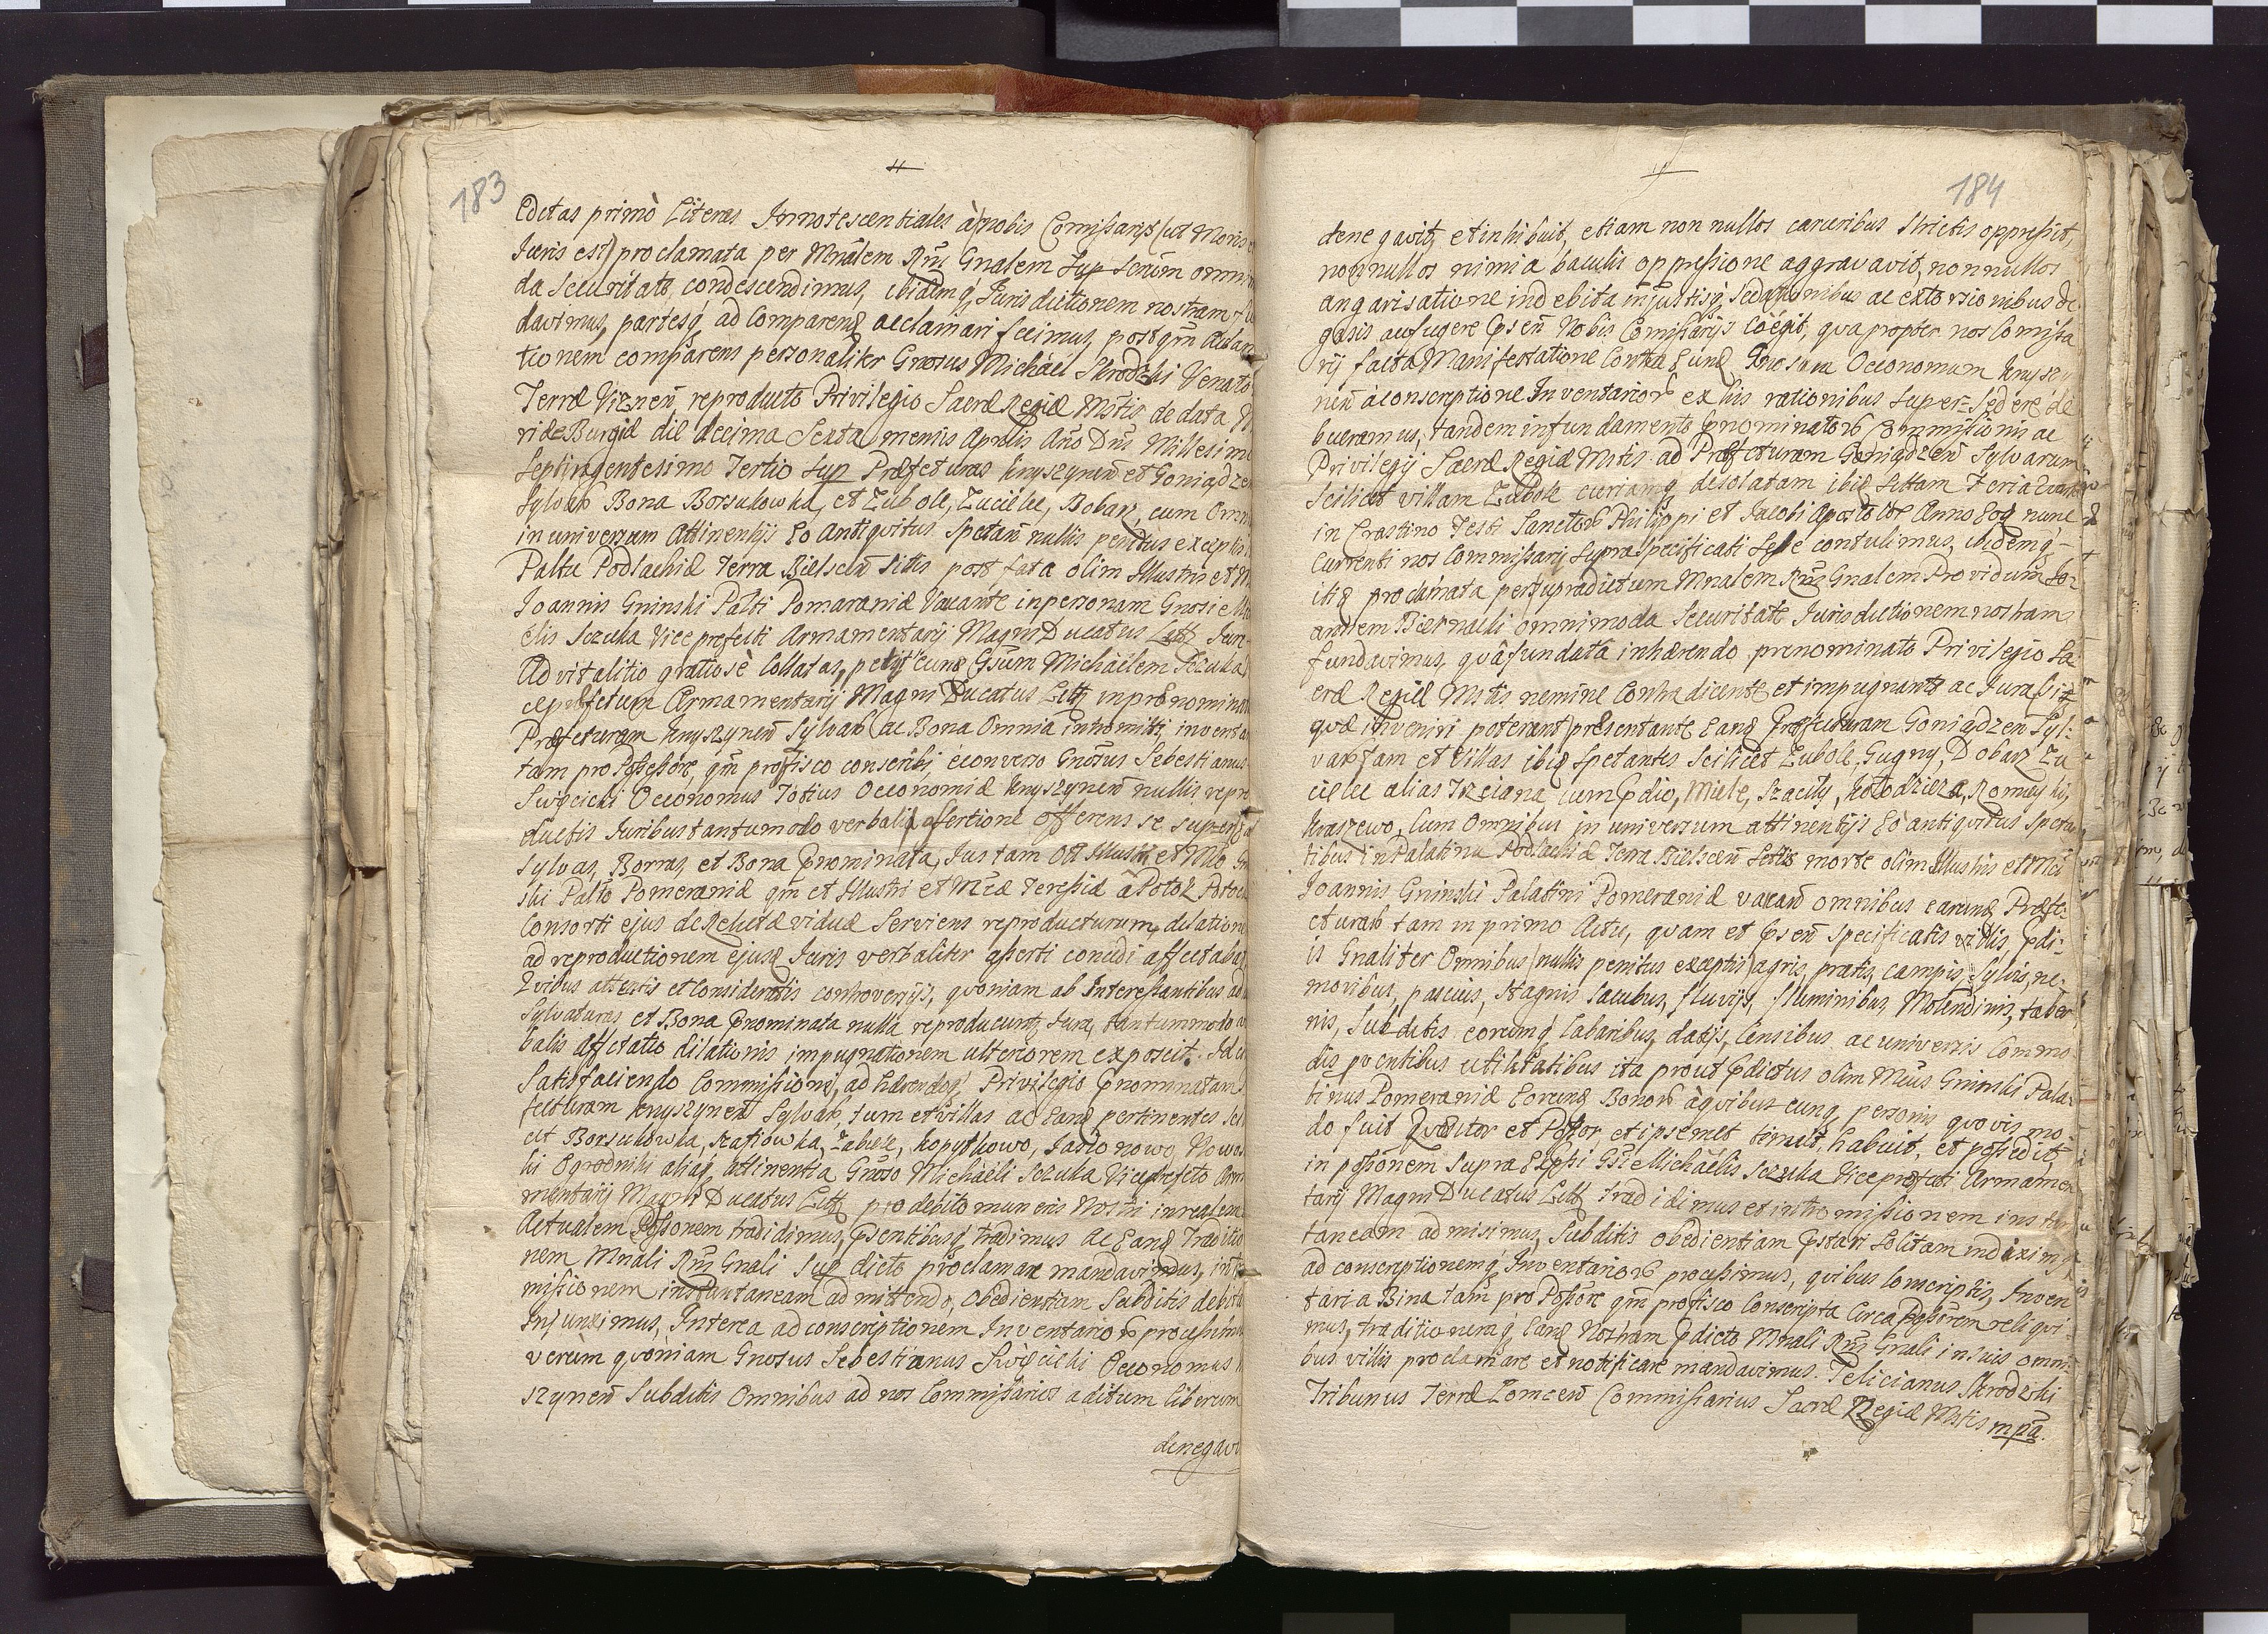 183
Edictas primò Literas Innotescentiales à nobis Comissarijs (ut Moris
Iuris est) proclamata per Mnalem Rnī Gnalem Sup Scrūm omni
da Securitate, condescendimus, ibidemq, Iurisdictionem nostram
davimus, partesq, ad Comparend acclamari fecimus, post qm
tionem comparens personaliter Gnosus Michaël Skrodzki Venato
Terræ Viznen reproducto Privilegio Sacræ Regiæ Mstis de data
riæ Burgiæ die decima Sexta mensis Aprilis Año Dnī Millesimo
Septingentesimo Tertio Sup Præfecturas Knyszynen et Goniądzen
Sylvar Bona Borsukowka, et Zubole, Zucielec, Dobarz, cum Omni
in universum Attinentijs Eo Antiquitus Spectan nullis penitus exceptis
Paltu Podlachiæ Terra Bielscen Sittis post fata olim Illustris et M
Ioannis Gninski Palti Pomaraniæ Vacante in personam Gnosi Mi
elis Sczuka Vice prefecti Armamentarij Magni Ducatus Litt Iure
Advitalitio gratiosè Collatas, petijt eund Gsum Michaëlem Sczuka
ceprefectum Armamentarij Magni Ducatus Litt in prænomina
Præfecturam Knyszynen Sylvar ac Bona Omnia intromitti, inventa
tam pro Possessore, qm pro fisco conscribi, è converso Gnosus Sebestianus
Swięcicki Oeconomus Totius Oeconomiæ Knyszynen nullis repro
ductis Iuribus tantumodo verbali assertione offerens se
Sylvas, Borras, et Bona Prominata, Ius tam Oli Illustri et Mco Gni
ski Palto Pomeraniæ qm et Illustri et Mcæ Teressiæ à Potok Potock
Consorti ejus de Relictæ viduæ Serviens reproducturum, delationem
ad reproductionem ejusd Iuris verbaliter asserti concedi affectabat
Quibus attentis et Consideratis controversijs, quoniam ab Interessantibus ad
Sylvaturas et Bona Pnominata nulla reproducunt Iura, tantummodo ver
balis affectatio dilationis impugnationem ulteriorem exposcit. Id
Satisfaciendo Commissioni, ad hærendoq Privilegio Pnominatam
fecturam Knyszynen Sylvar, tum et villas ad Eand pertinentes Sci
cet Borsukowka, Kopytkowo, Jasionowo, Nowa
ki Ogrodniki aliaq attinentia Gnoso Michaëli Sczuka Viceprefecto Arma
mentarij Magni Ducatus Litt pro debito muneris Nostri in realem
Actualem Possonem tradidimus, Psentibusq tradimus ac Eand Traditio
nem Mnali Rnī Gnali Sup dicto proclamare mandavimus, intro
missionem instantaneam admittendo, Obedientiam Subditis debitam
Injunximus, Interea ad conscriptionem Inventarior processimus
verùm quoniam Gnosus Sebestianus Swięcicki Oeconomus
szynen Subditis Omnibus ad nos Commissarios aditum liberum
denegavi
184
denegavit, et inhibuit, etiam non nullos carceribus Strictis oppressit,
non nullos nimia baculis oppressione aggravavit, non nullos
angarisatione indebita injustisq, ac extorsionibus de
gasis aufugere Psen Nobis Comissarijs Coëgit, qua propter nos Comissa
rij facta Manifestatione Contra Eund Gnosum Oeconomum Knyszy
nen à conscriptione Inventarior ex his rationibus Super-Sedere de
bueramus, tandem in fundamento Pnominator Commissionis ac
Privilegij Sacræ Regiæ Mstis ad Præfecturam Goniądzen Sylvarum
Scilicet villam Zubole curiamq desolatam ibid Sittam Feria
in Crastino Festi Sanctor Philippi et Jacobi Apostolor Anno Eod nunc
Currenti nos Commissarij Supra specificati Sese contulimus, ibidemq
itid proclamata per Supradictum Mnalem Rnī Gnalem Providum Io-
annem Biernacki omnimoda Securitate Iurisdictionem nostram
fundavimus, quâ fundatâ inhærendo prenominato Privilegio Sa-
cræ Regiæ Mstis nemine Contradicente et impugnante ac Iura
quæ inveniri poterant præsentante Eand Præfecturam Goniądzen Syl-
var tam et Villas ibid Spectantes Scilicet Zubole, Gugny, Dobarz Zu
cielec alias Trzciana cum Pdio, Miele, Szacily, Kołodzieza, Romeyki,
Kraszewo, Cum Omnibus in universum attinentijs Eo antiquitus Specta
tibus in Palatinu Podlachiæ Terra Bielscen Sittis morte olim Illustris et Mci
Ioannis Gninski Palatini Pomeraniæ vacan omnibus earund Præfe-
cturar tam in primo Actu, quam et Psen Specificatis villis, Pdi-
is Gnaliter Omnibus (nullis penitus exceptis) agris, pratis, campis, Sylvis, ne-
moribus, pascuis, Stagnis Lacubus, fluvijs, fluminibus, Molendinis, taber
nis, Subditis eorumq Laboribus, datijs, Censibus ac universis Commo
dis pventibus utilitatibus ita prout Pdictus olim Mcus Gninski Pala-
tinus Pomeraniæ Eorund Bonor à quibus cunq personis quovis mo-
do fuit et Possor, et ipsemet tenuit, habuit, et possedit,
in possionem Supra Gsi Michaëlis Sczuka Viceprefecti Armamen
tarij Magni Ducatus Litt tradidimus et intromissionem instan
taneam admisimus, Subditis obedientiam Pstari Solitam
ad conscriptionemq Inventarior processimus, quibus Conscriptis, Inven
taria Bina tam pro Possore qm pro fisco Conscripta Circa Possorem reliqui-
mus, traditionemq Eand Nostram Pdicto Mnali Rnī Gnali in suis omni-
bus villis proclamare et notificare mandavimus. Felicianus Skrodzki
Tribunus Terræ Lomzen Commissarius Sacræ Regiæ Mstis mpa.